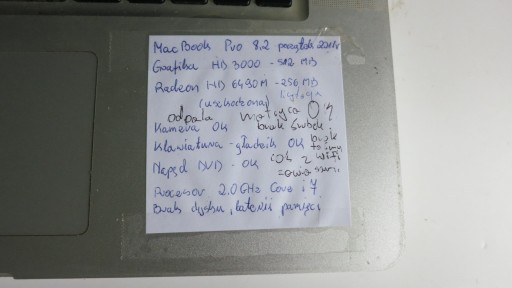 MacBook Pro 8,2 początek 2011r
Grafika HD 3000 - 512 MB
Radeon HD 6490M - 256 MB
(uszkodzona) była
odpala matryca OK
Kamera OK brak śrubek
Klawiatura - gładzik OK brak
Napęd DVD - OK coś z wifi
Procesor 2.0 GHz Core i7
Brak dysku, baterii pamięci